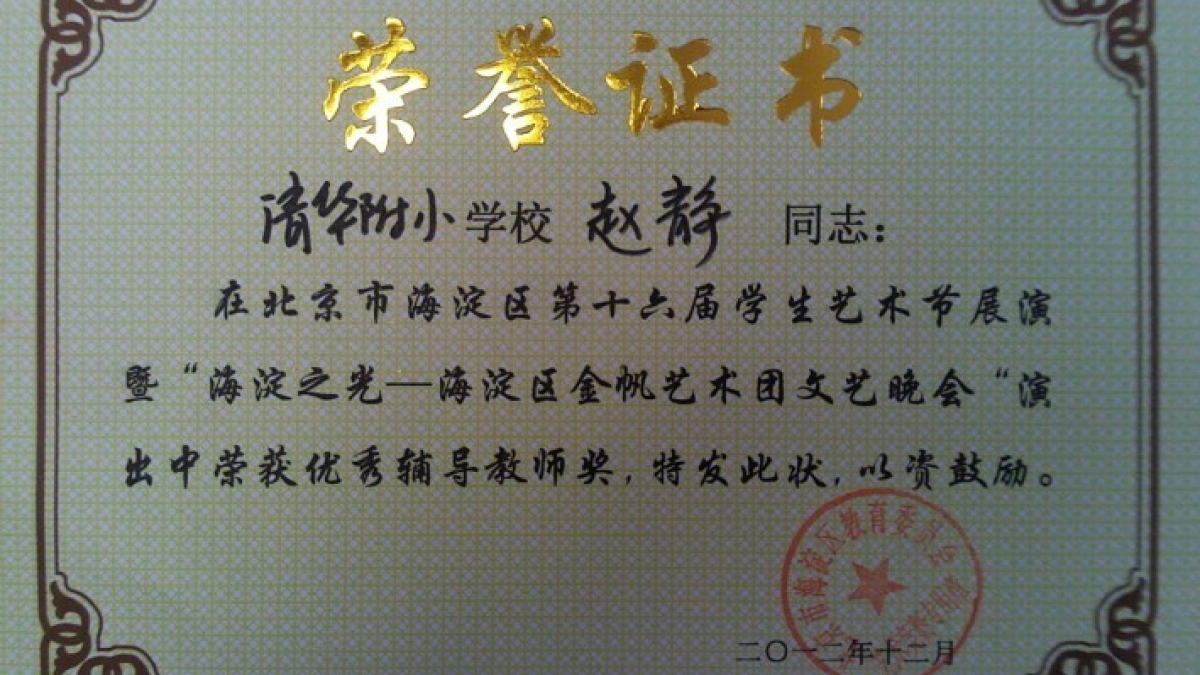 荣誉证书
清华附小学校 赵静 同志：
在北京市海淀区第十六届学生艺术节展演
暨“海淀之光—海淀区金帆艺术团文艺晚会“演
出中荣获优秀辅导教师奖,特发此状,以资鼓励。
市海淀区教育委员会
二〇一二年十二月